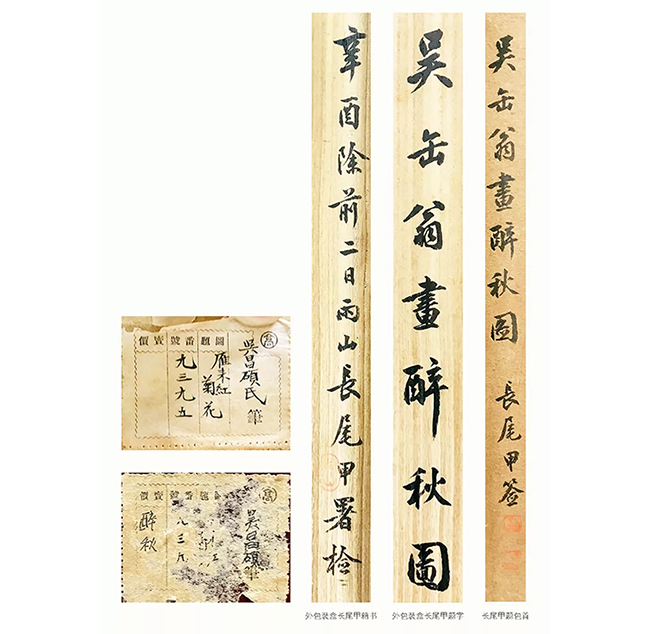 吳缶翁畫醉秋圖 長尾甲签
吳缶翁畫醉秋圖
辛酉除前二日雨山長尾甲署检
價賣 號番 題圖
吳昌碩氏筆
雁来紅
菊花
九三九五
價賣 號番
吳昌碩筆
醉秋
外包装盒长尾甲籍书
外包装盒长尾甲题字
长尾甲题包首